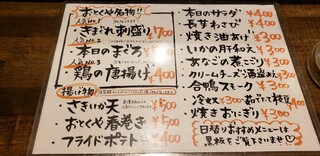 おとくや名物!!
人気No.1
きまぐれ刺盛り ¥700
人気No.2
本日のまぐろ
人気No.3
鶏の唐揚げ ¥400
揚げ物
ささいか天 ¥500
おとくや春巻き ¥500
フライドポテト ¥400
本日のサラダ ¥400
長芋わさび ¥400
焼き油あげ ¥300
いかの肝和え ¥300
あなごの煮こごり ¥300
クリームチーズ酒盗のせ ¥300
合鴨スモーク ¥300
冷やっこ ¥300 茹でたて枝豆 ¥400
焼きおにぎり ¥300
日替りおすすめメニューは
黒板をご覧下さいませ